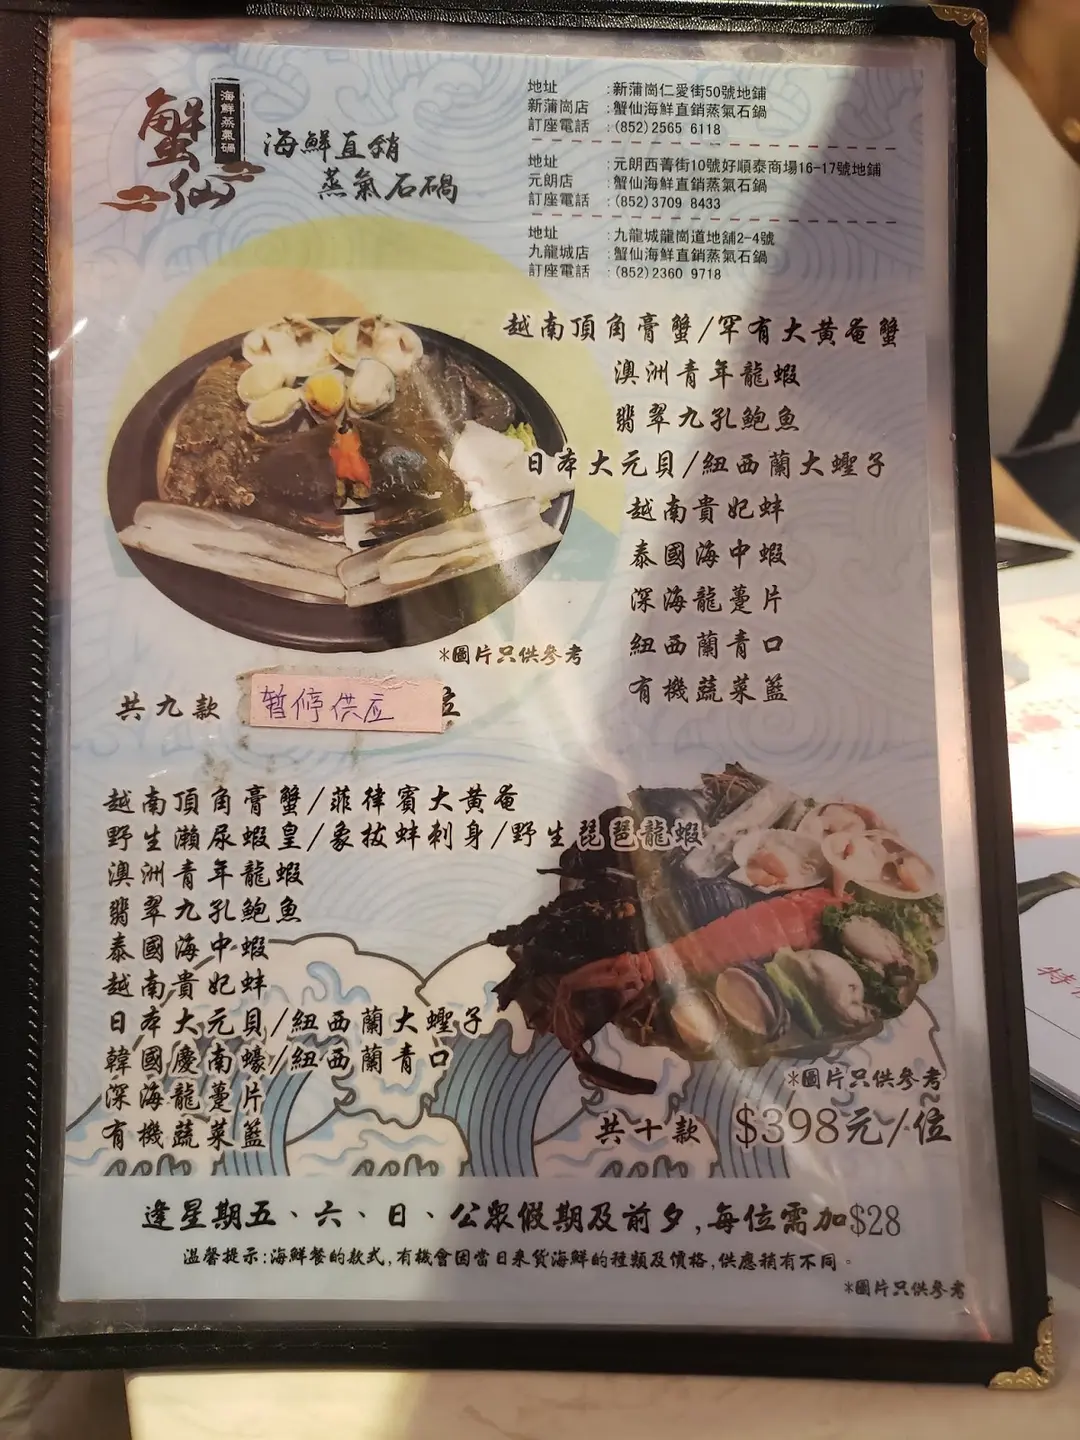 蟹仙
海鮮蒸氣鍋
海鮮直銷
蒸氣石鍋
地址 :新蒲崗仁愛街50號地鋪
新蒲崗店 :蟹仙海鮮直銷蒸氣石鍋
訂座電話 :(852)2565 6118
地址 :元朗西菁街10號好順泰商場16-17號地鋪
元朗店 :蟹仙海鮮直銷蒸氣石鍋
訂座電話 :(852)3709 8433
地址 :九龍城龍崗道地舖2-4號
九龍城店 :蟹仙海鮮直銷蒸氣石鍋
訂座電話 :(852)2360 9718
越南頂角膏蟹/罕有大黃奄蟹
澳洲青年龍蝦
翡翠九孔鮑魚
日本大元貝/紐西蘭大蟶子
越南貴妃蚌
泰國海中蝦
深海龍躉片
紐西蘭青口
有機蔬菜籃
*圖片只供參考
共九款 暫停供应 位
越南頂角膏蟹/菲律賓大黃奄
野生瀨尿蝦皇/象拔蚌刺身/野生琵琶龍蝦
澳洲青年龍蝦
翡翠九孔鮑魚
泰國海中蝦
越南貴妃蚌
日本大元貝/紐西蘭大蟶子
韓國慶南蠔/紐西蘭青口
深海龍躉片
有機蔬菜籃
*圖片只供參考
共十款 $398元/位
逢星期五、六、日、公眾假期及前夕,每位需加$28
溫馨提示:海鮮餐的款式,有機會因當日來貨海鮮的種類及價格,供應稍有不同。
*圖片只供參考
特